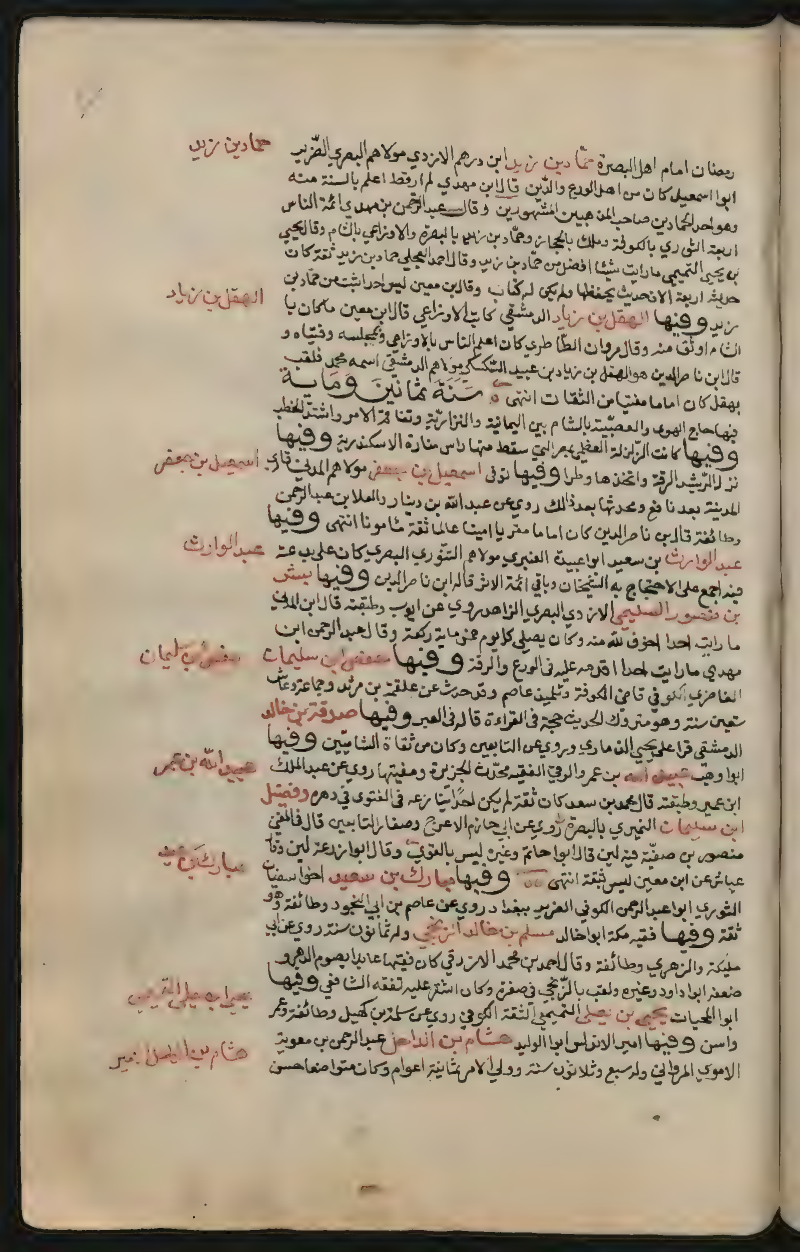 رمضان امام اهل البصرة حمّاد بن زيد ابن درهم الازدي مولاهم البصري الضّرير
حماد بن زيد
ابوا اسمعيل كان من اهل الورع والدّين قال ابن مهدي لم ار قط اعلم بالسنة منه
وهو احد الحمادين صاحب المذهبين المشهورين وقال عبد الرحمن بن مهدي ائمة الناس
اربعة الثوري بالكوفة ومالك بالحجاز وحمّاد بن زيد بالبصرة والاوزاعي بالشام وقال يحيى
بن يحيى التميمي ما رايت شيئا افضل من حمّاد بن زيد وقال احمد العجلي حماد بن زيد ثقة كان
حديثه اربعة الاف حديث يحفظها ولم يكن له كتاب وقال ابن معين ليس احد اثبت من حمّاد بن
زيد وفيها الهقل بن زياد الدمشقي كاتب الاوزاعي قال ابن معين ما كان با
الهقل بن زياد
الشام اوثق منه وقال مروان الطاطري كان اعلم الناس بالاوزاعي وبمجلسه وفتياه و
قال ابن ناصر الدين هو الهقل بن زياد بن عبيد السّكسكي مولاهم الدمشقي اسمه محمد فلقب
بهقل كان اماما مفتيا من الثقات انتهى سنة ثمانين وماية
فيها هاج الهوى والعصبيّة بالشام بين اليمانية والنزاريّة وتفاقم الامر واشتدّ الخطب
وفيها كانت الزلزلة العظمى بمصر التي سقط منها راس منارة الاسكندرية وفيها
نزل الرّشيد الرقة واتخذها وطرا وفيها توفى اسمعيل بن جعفر مولاهم المدني قاري
اسمعيل بن جعفر
المدينة بعد نافع ومحدثها بعد ذلك روى عن عبد الله بن دينار والعلا بن عبد الرحمن
وطائفة قال بن ناصر الدين كان اماما مقريا امينا عالما ثقة مامونا انتهى وفيها
عبد الوارث بن سعيد ابوا عبيدة العنبري مولاهم التنّوري البصري كان على بدعة
عبد الوارث
فيه اجمع على الاحتجاج به الشيخان وباقي ائمة الاثر قاله ابن ناصر الدين وفيها بشر
بن منصور السليمي الازدي البصري الزاهد روى عن ايوب وطبقته قال ابن المديني
ما رايت احدا اخوف لله منه وكان يصلي كل يوم خمس ماية ركعة وقال عبد الرحمن ابن
مهدي ما رايت احدا اقدمه عليه في الورع والرقة وفيها حفص ابن سليمان
حفص ابن سليمان
الغاضري الكوفي قاضي الكوفة وتلميذ عاصم وقد حدث عن علقمة بن مرثد وجماعة وعاش
تسعين سنة وهو متروك الحديث حجة في القراءة قاله في العبر وفيها صدقة بن خالد
الدمشقي قرا على يحيى الذماري وروى عن التابعين وكان من ثقاة الشاميّين وفيها
ابوا وهب عبيد الله بن عمرو الرقّي الفقيه محدّث الجزيرة ومفتيها روى عن عبد الملك
عبيد الله بن عمر
ابن عمير وطبقته قال محمد بن سعد كان ثقة لم يكن احدا ينازعه في الفتوى في دهره وفضيل
ابن سليمان النميري بالبصرة روى عن ابي حازم الاعرج وصغار التابعين قال في المغني
منصور بن صفيّة فيه لين قال ابوا حاتم وغيره ليس بالقوي وقال ابوا زرعة لين وقال
عباس عن ابن معين ليس بثقة انتهى وفيها مبارك بن سعيد اخوا سفيان
مبارك بن سعيد
الثوري ابوا عبد الرحمن الكوفي الضرير ببغداد روى عن عاصم بن ابي النجود وطائفة وهو
ثقة وفيها فقيه مكة ابوا خالد مسلم بن خالد الزنجي وله ثمانون سنة روى عن ابي
مليكة والزهري وطائفة وقال احمد بن محمد الازرقي كان فقيها عابدا يصوم الدهر و
ضعفه ابوا داود وغيره ولقب بالزّنجي في صغره وكان اشقر عليه تفقه الشافعي وفيها
ابوا المحيات يحيى بن يعلى التميمي الثقة الكوفي روى عن سلمة بن كهيل وطائفة وعمر
يحيى بن يعلى التميمي
واسن وفيها امير الاندلس ابوا الوليد هشام بن الداخل عبد الرحمن بن معوية
هشام بن الداخل امير
الاموي المرواني وله سبع وثلاثون سنة وولي الامر بثمانية اعوام وكان متواضعا حسن